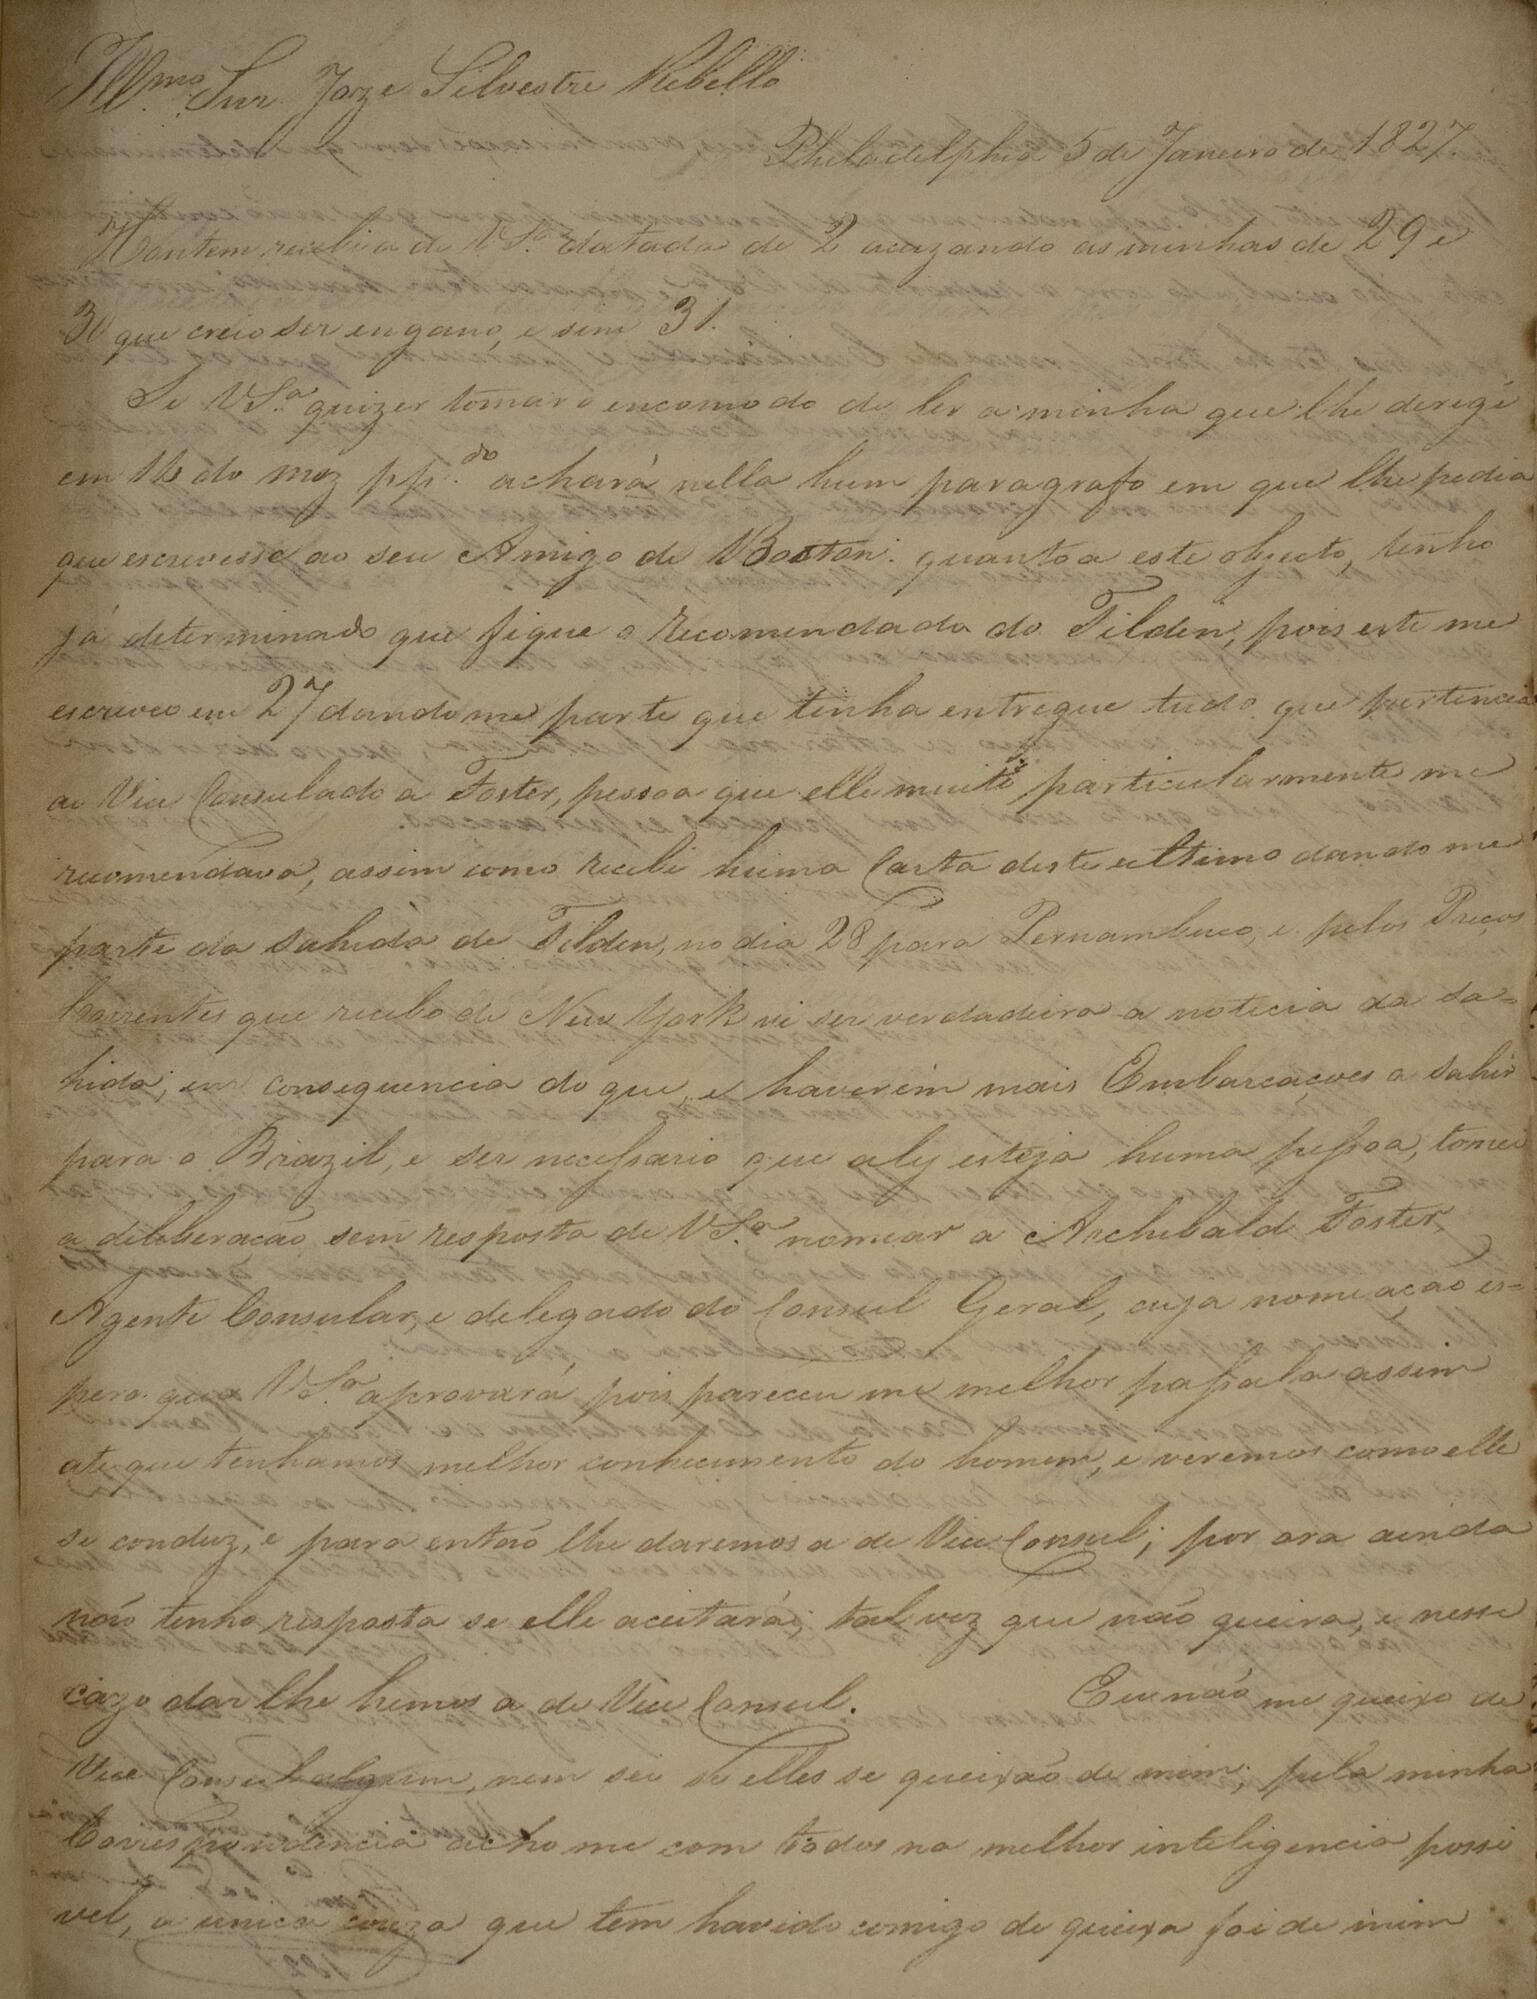 Illmo. Snr. Jorze Silvestre Rebello
Philadelphia 5 de Janeiro de 1827.
Hontem recebi a de VSa. datada de 2 acuzando as minhas de 29 e
30 que creio ser engano, e sim 31.
Se VSa. quizer tomar o encomodo de ler a minha que lhe deregé
em 16 do mez pp.do achará nella hum paragrafo em que lhe pedia
que escrevesse ao seu Amigo de Boston: quanto a este objecto, tenho
já determinado que fique o recomendado do Tilden, pois este me
escreveo em 27 dando me parte que tinha entregue tudo que pertencia
ao Vice Consulado a Foster, pessoa que elle muito particularmente me
recomendava, assim como recebi huma Carta deste ultimo dando me
parte da sahida de Tilden, no dia 28 para Pernambuco, e pelos Precos
Correntes que recebo de New York vi ser verdadeira a noticia da sa=
hida; em consequencia do que, e haverem mais Embarcaçoes a sahir
para o Brazil, e ser necessario que aly esteja huma pessoa, tomei
a deleberação sem resposta de VSa. nomear a Archibald Foster,
Agente Consular, e delegado do Consul Geral, cuja nomeação es=
pero que VSa. aprovará pois pareceu me melhor passala assim
ate que tenhamos melhor conhecimento do homem, e veremos como elle
se conduz, e para então lhe daremos a de Vice Consul; por ora ainda
não tenho resposta se elle aceitará; tal vez que não queira, e nesse
cazo dar lhe hemos a de Vice Consul. Eu não me queixo de
Vice Consul algum, nem sei se elles se queixão de mim; pela minha
Correspondencia acho me com todos na melhor inteligencia possi
vel, a unica couza que tem havido comigo de queixa foi de mim